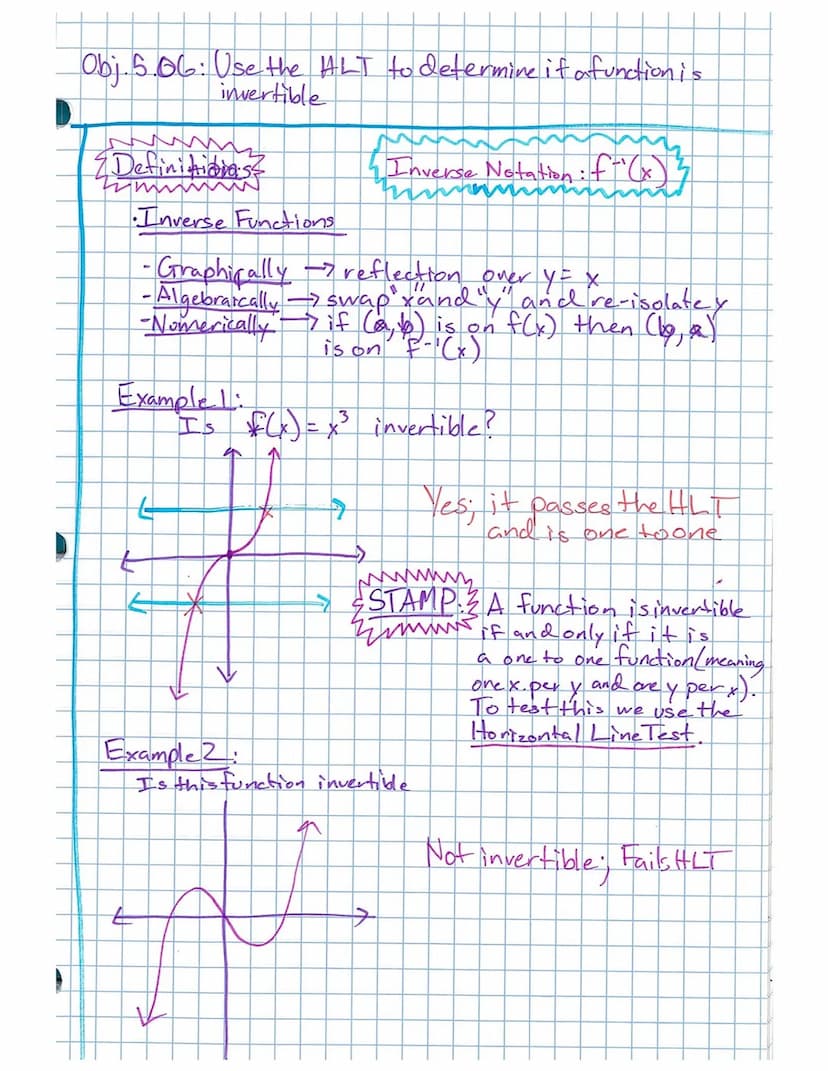 Obj. 5.06: Use the HLT to determine if a function is
invertible
Definitions
Inverse Notation: f⁻¹(x)
· Inverse Functions
- Graphically → reflection over y = x
- Algebraically → swap "x" and "y" and re-isolate y
- Numerically → if (a, b) is on f(x) then (b, a)
is on f⁻¹(x)
Example 1:
Is f(x) = x³ invertible?
Yes; it passes the HLT
and is one to one
STAMP: A function is invertible
if and only if it is
a one to one function (meaning
one x per y and one y per x).
To test this we use the
Horizontal Line Test.
Example 2:
Is this function invertible
Not invertible; Fails HLT